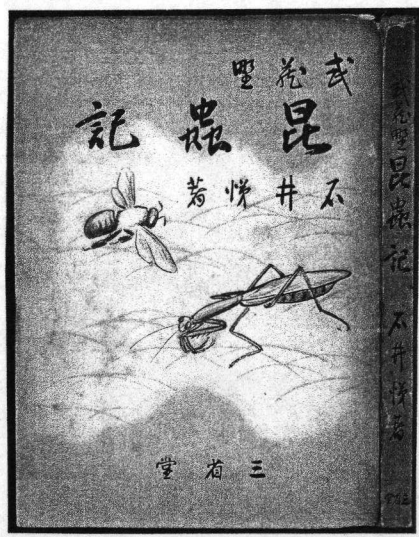 武蔵墅
昆蟲記
石井悌著
三省堂
武蔵墅昆蟲記 石井悌著